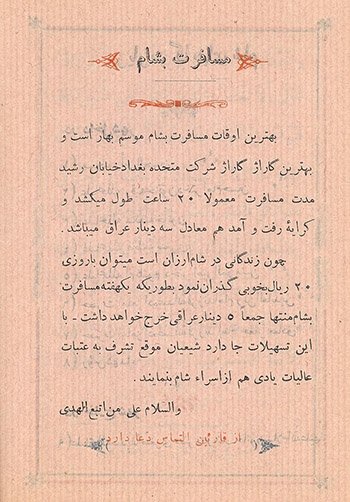 مسافرت بشام
بهترین اوقات مسافرت بشام موسم بهار است و
بهترین گاراژ گاراژ شرکت متحده بغداد خیابان رشید
مدت مسافرت معمولا ۲۰ ساعت طول میکشد و
کرایهٔ رفت و آمد هم معادل سه دینار عراقی میباشد.
چون زندگانی در شام ارزان است میتوان باروزی
۲۰ ریال بخوبی گذران نمود بطوریکه یکهفته مسافرت
بشام منتها جمعا ۵ دینار عراقی خرج خواهد داشت - با
این تسهیلات جا دارد شیعیان موقع تشرف به عتبات
عالیات یادی هم از اسراء شام بنمایند.
والسلام علی من اتبع الهدی
از قارئین التماس دعا دارد